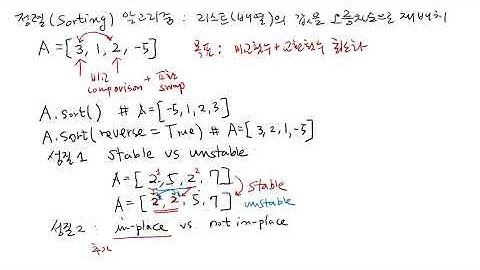 정렬(Sorting) 알고리즘 : 리스트(배열)의 값을 오름차순으로 재배치
A = [3, 1, 2, -5] 목표 : 비교횟수+교환횟수 최소화
비교 + 교환
comparison swap
A.sort() # A=[-5, 1, 2, 3]
A.sort(reverse = True) # A=[3, 2, 1, -5]
성질1 stable vs unstable
A=[2¹, 5, 2², 7] stable
A=[2, 2, 5, 7] unstable
성질2 : in-place vs not in-place
추가